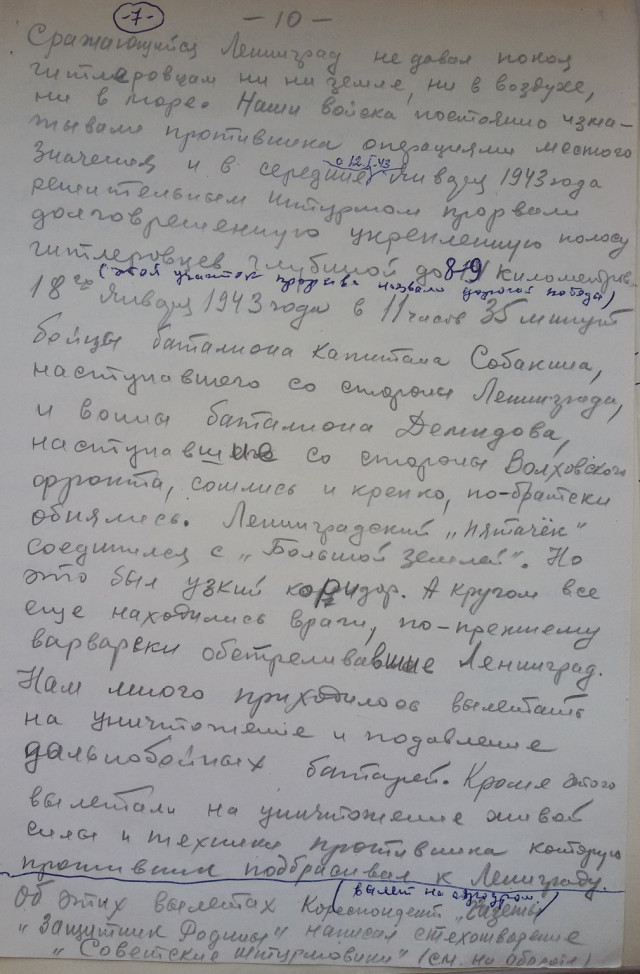 -7- - 10 -
Сражающийся Ленинград не давал покоя
гитлеровцам ни на земле, ни в воздухе,
ни в море. Наши войска постоянно изма-
тывали противника операциями местного
с 12.I.43
значения и в середине января 1943 года
решительным штурмом прорвали
долговременную укрепленную полосу
гитлеровцев глубиной до 8-9 километров.
(этой участок прорыва назвали дорогой победы)
18го января 1943 года в 11 часов 35 минут
бойцы баталиона капитана Собакина,
наступавшего со стороны Ленинграда,
и воины баталиона Демидова,
наступавшие со стороны Волховского
фронта, сошлись и крепко, по-братски
обнялись. Ленинградский „пятачёк"
соединился с „Большой землей". Но
это был узкий коридор. А кругом все
еще находились враги, по-прежнему
варварски обстреливавшие Ленинград.
Нам много приходилось вылетать
на уничтожение и подавление
дальнобойных батарей. Кроме этого
вылетали на уничтожение живой
силы и техники противника которую
противник подбрасывал к Ленинграду.
(вылет на аэродром)
Об этих вылетах Кореспондент „газеты
„Защитник Родины" написал стехотворение
„Советские штурмовики" (см. на обороте)